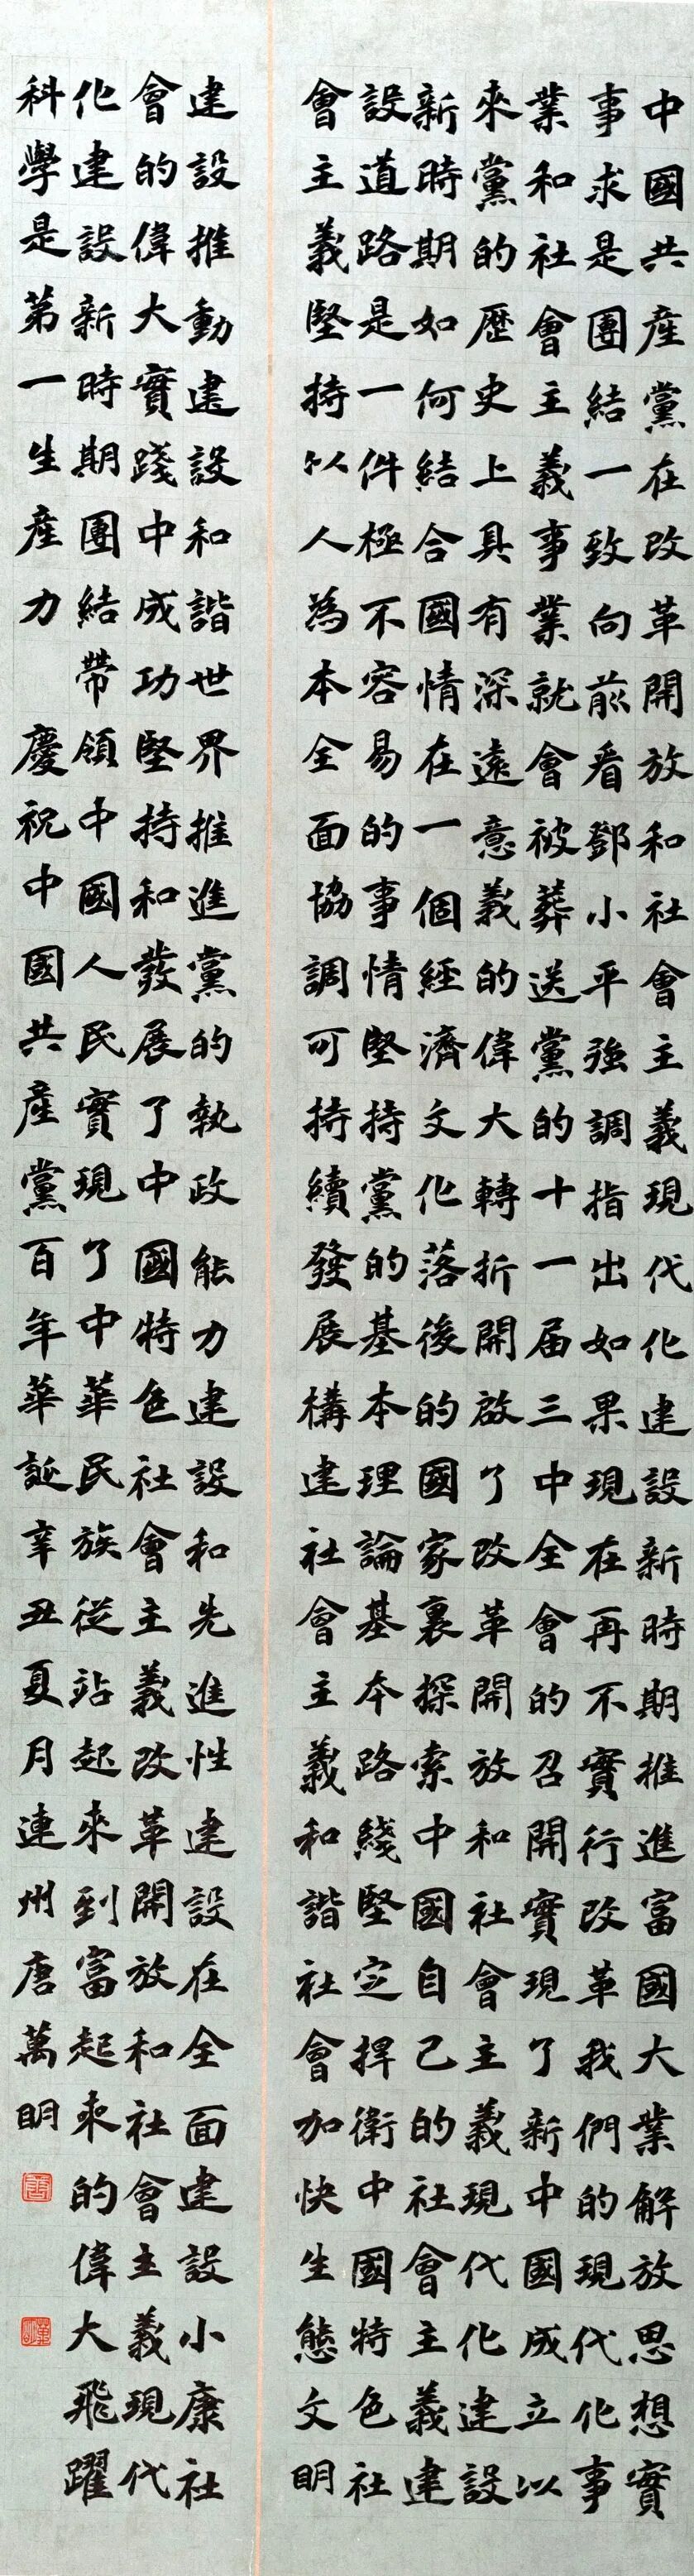 中國共產黨在改革開放和社會主義現代化建設新時期推進富國大業解放思想實
事求是團結一致向前看鄧小平強調指出如果現在再不實行改革我們的現代化事
業和社會主義事業就會被葬送黨的十一届三中全會的召開實現了新中國成立以
來黨的歷史上具有深遠意義的偉大轉折開啟了改革開放和社會主義現代化建設
新時期如何結合國情在一個經濟文化落後的國家裏探索中國自己的社會主義建
設道路是一件極不容易的事情堅持黨的基本理論基本路綫堅定捍衛中國特色社
會主義堅持以人為本全面協調可持續發展構建社會主義和諧社會加快生態文明
建設推動建設和諧世界推進黨的執政能力建設和先進性建設在全面建設小康社
會的偉大實踐中成功堅持和發展了中國特色社會主義改革開放和社會主義現代
化建設新時期團結帶領中國人民實現了中華民族從站起來到富起來的偉大飛躍
科學是第一生產力 慶祝中國共產黨百年華誕辛丑夏月連州唐萬明